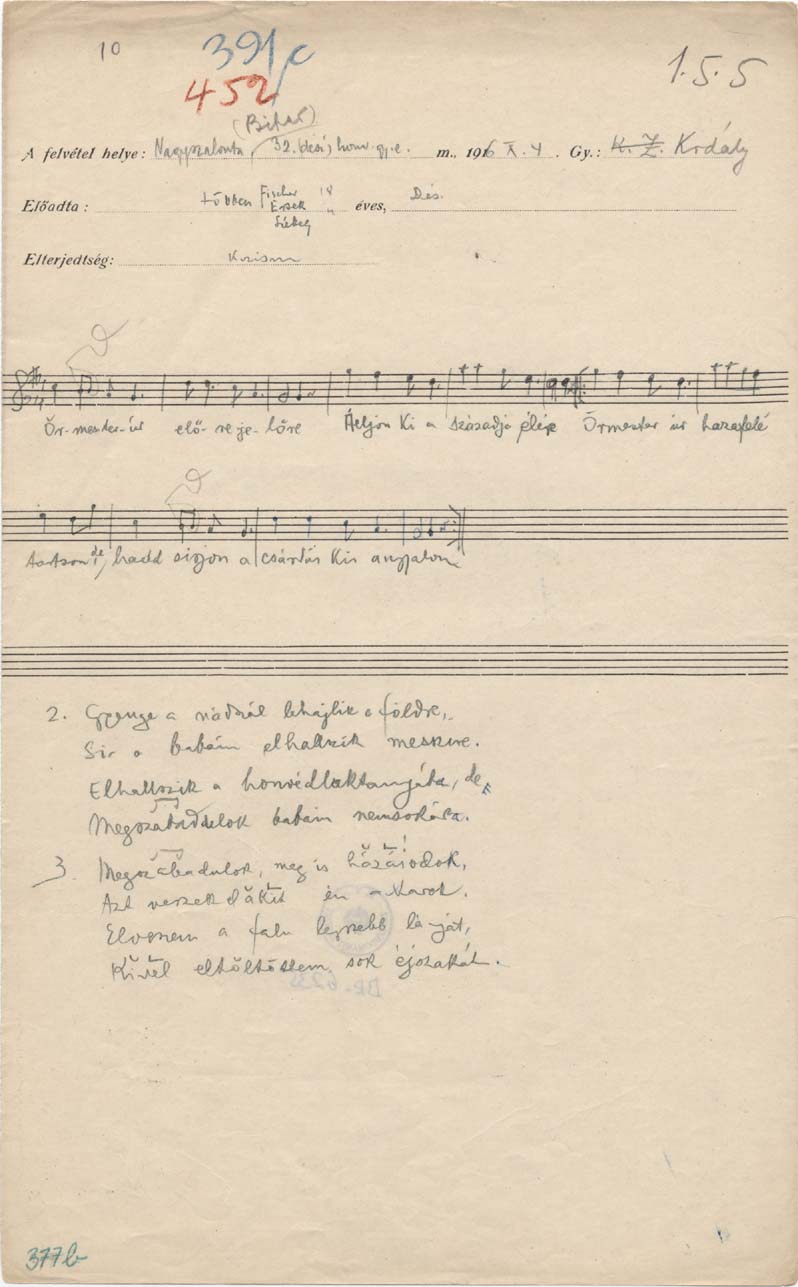 10
391/c
452
1.5.5
(Bihar)
A felvétel helye: Nagyszalonta, 32. dési honv. gy. e. m., 1916 X. 4. Gy.: K. Z. Kodály
Előadta: többen Fischer 18 éves, Dés.
Erzek "
Székely
Elterjedtség:
Őr-mester-úr elő-re je-lőre Álljon ki a századja élére Őrmester úr hazafelé
tartson de, hadd sírjon a csárdás kis angyalom
2. Gyenge a nádszál lehajlik a földre,
Sir a babám elhallszik messzire.
Elhallszik a honvédlaktanyába, de
Megszabadulok babám nemsokára.
3. Megszabadulok, meg is házasodok,
Azt veszek el akit én akarok.
Elveszem a falu legszebb lányát,
Kivel eltöltöttem sok éjszakát.
377b